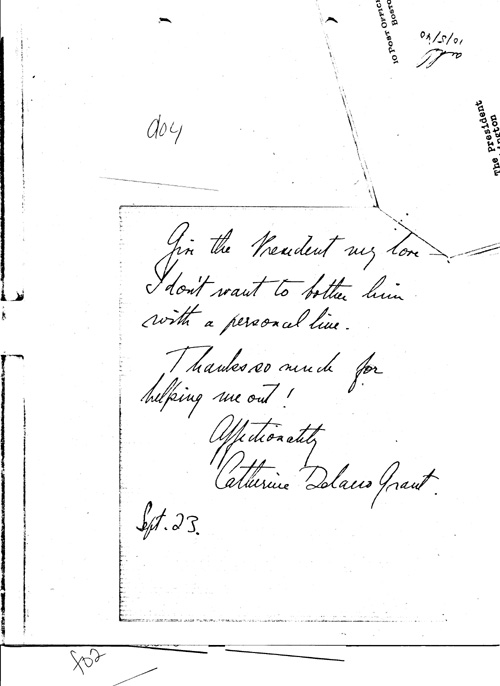 10 Post Office
Board
10/5/40
The President
d04
Give the President my love —
I don't want to bother him
with a personal line.
Thanks so much for
helping me out!
Affectionately
Catherine Delano Grant.
Sept. 23.
f02